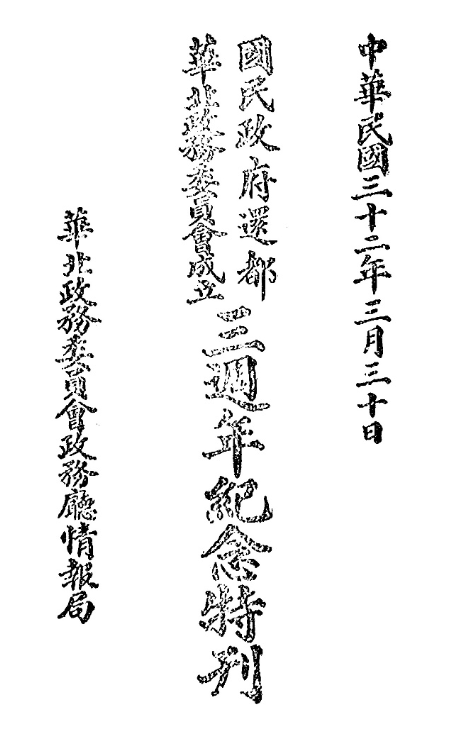 中華民國三十二年三月三十日
國民政府還都
華北政務委員會成立
三週年紀念特刊
華北政務委員會政務廳情報局